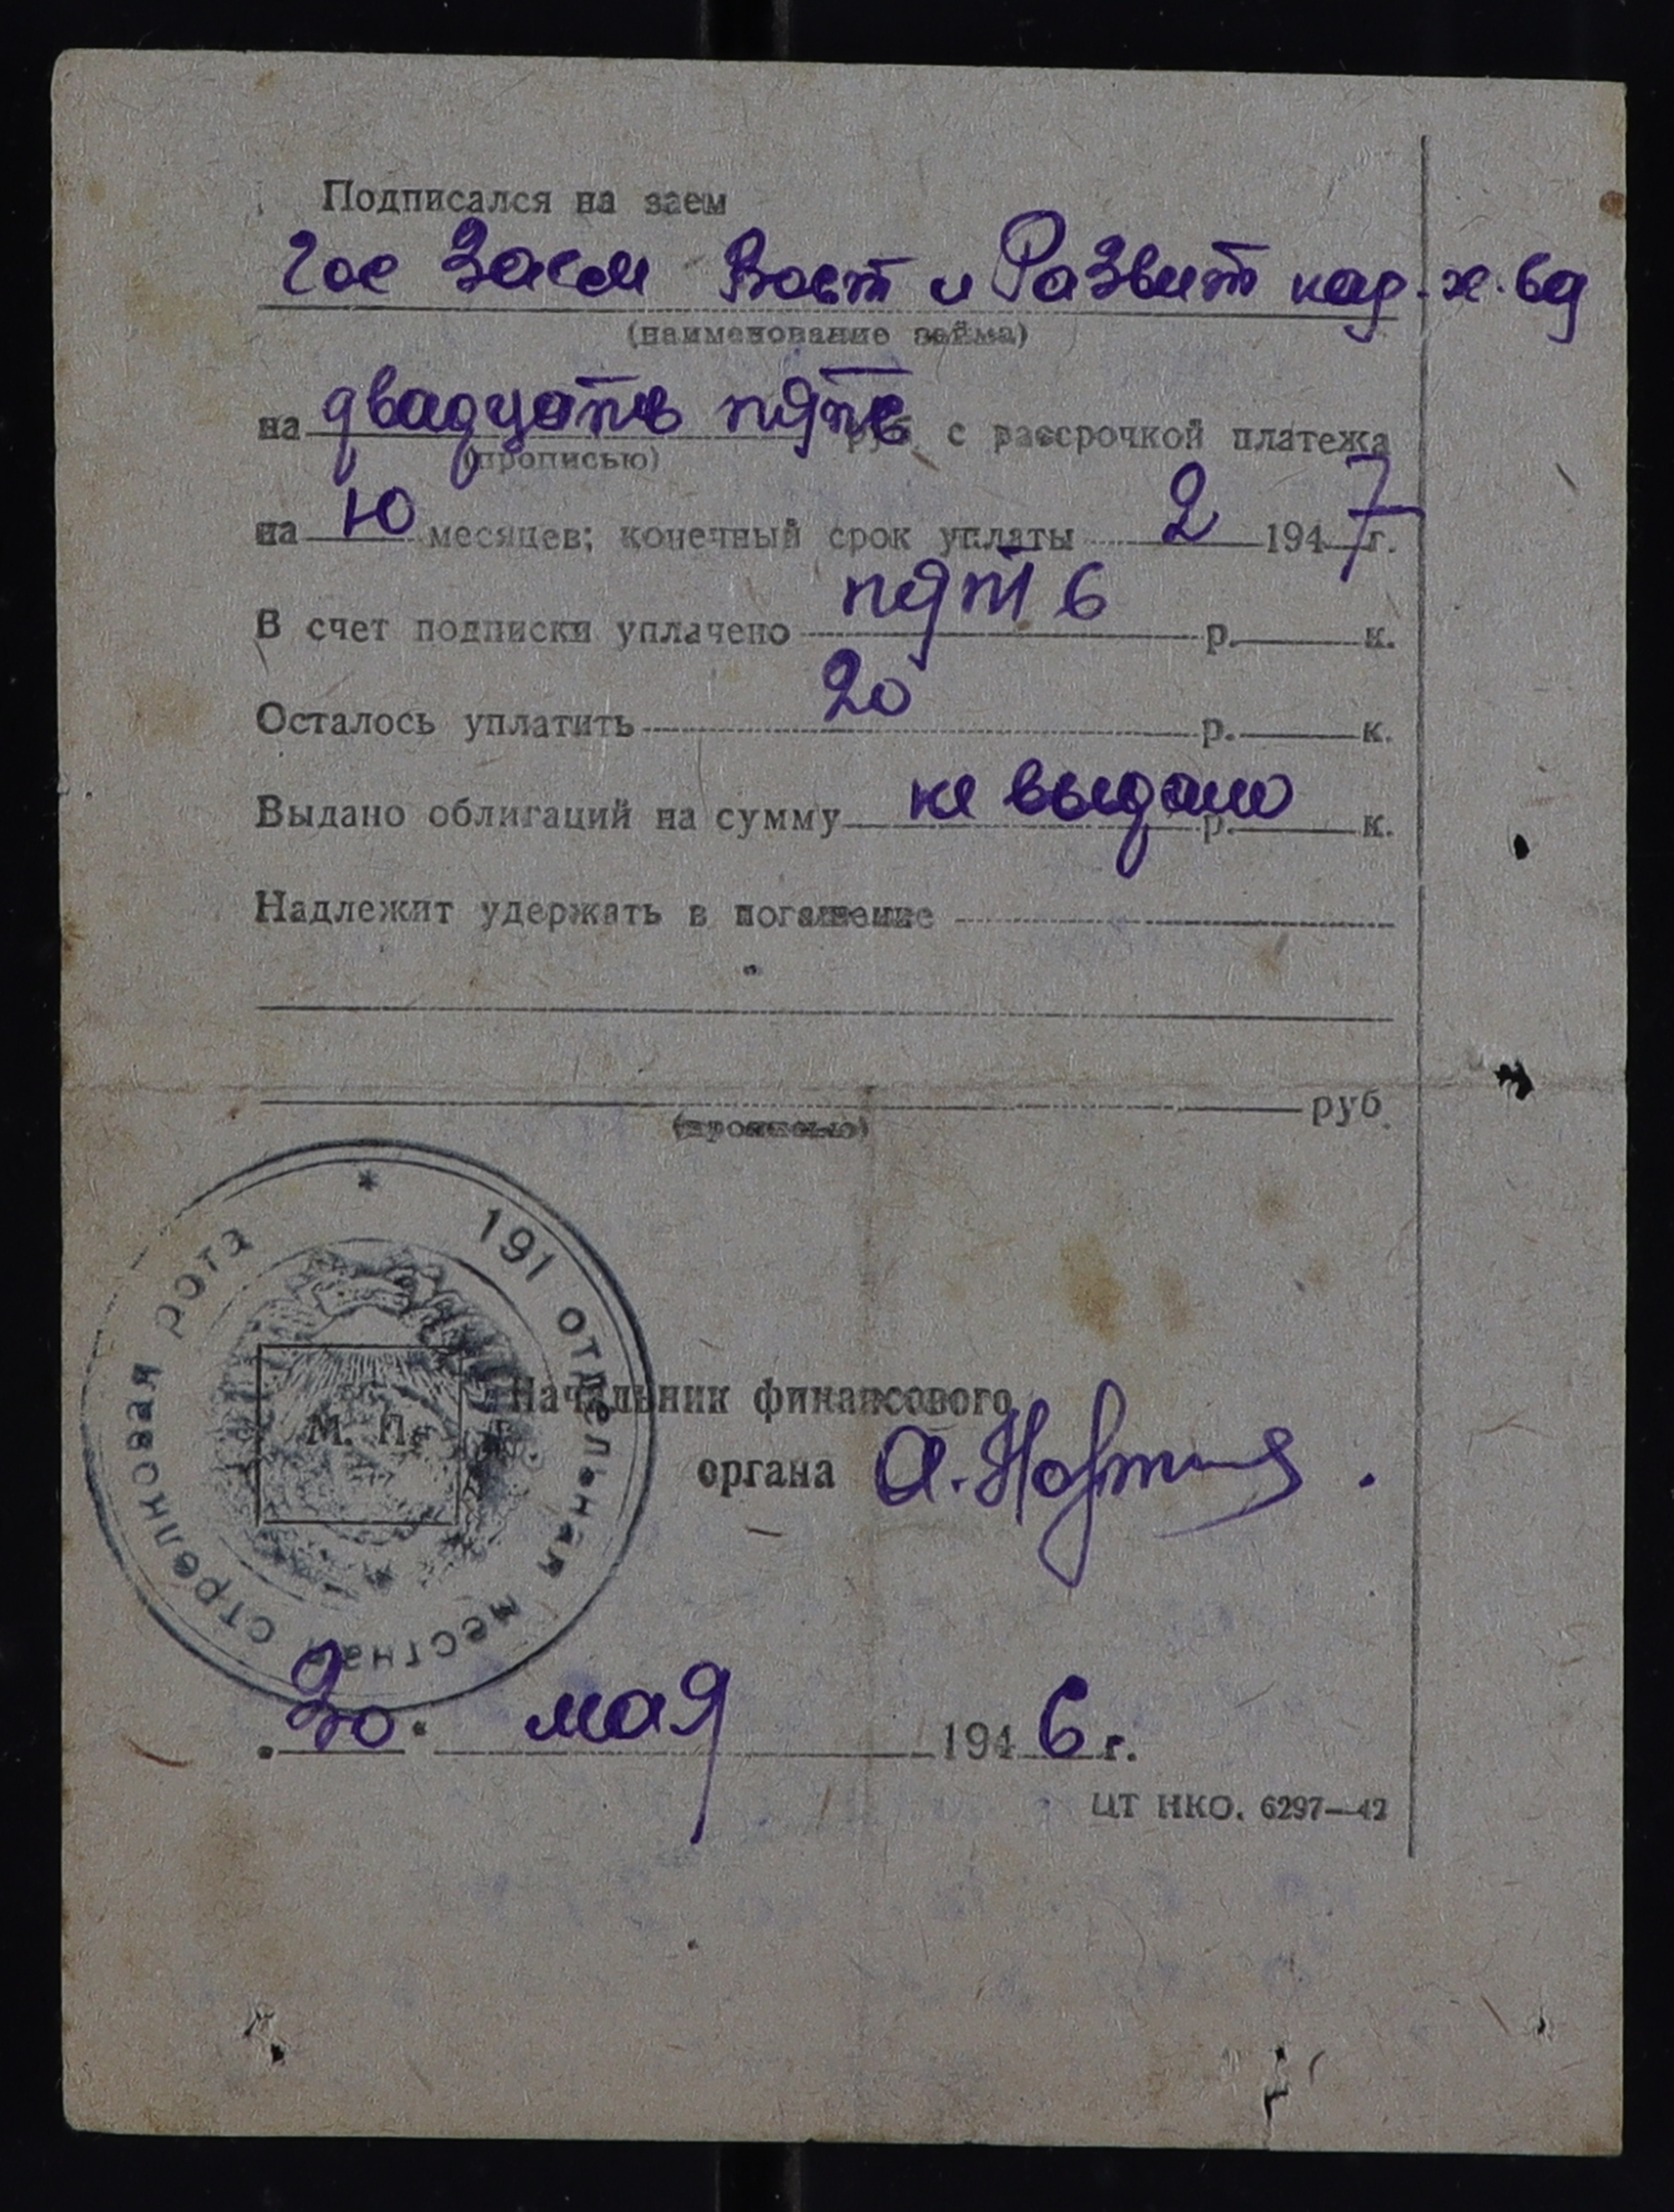 Подписался на заем
Гос Заем Вост и Развит нар. х-ва
(наименование займа)
на двадцать пять руб. с рассрочкой платежа
(прописью)
на 10 месяцев; конечный срок уплаты 2 1947 г.
В счет подписки уплачено пять р. к.
Осталось уплатить 20 р. к.
Выдано облигаций на сумму не выдано р. к.
Надлежит удержать в погашение
руб.
(прописью)
* 191 отдельная местная стрелковая рота
М. П.
Начальник финансового
органа
30. мая 1946 г.
ЦТ НКО. 6297—42